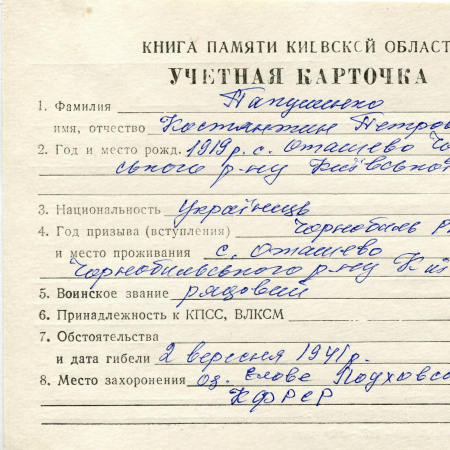 КНИГА ПАМЯТИ КИЕВСКОЙ ОБЛАСТ
УЧЕТНАЯ КАРТОЧКА
1. Фамилия Папушенко
имя, отчество Костянтин Петров
2. Год и место рожд. 1919 р. с. Оташево Чор
ського р-ну Київської
3. Национальность Українець
4. Год призыва (вступления) Чорнобиль Р
и место проживания с. Оташево
Чорнобильського р-ну Киї
5. Воинское звание рядовий
6. Принадлежность к КПСС, ВЛКСМ
7. Обстоятельства
и дата гибели 2 вересня 1941 р.
8. Место захоронения оз.
КФРСР